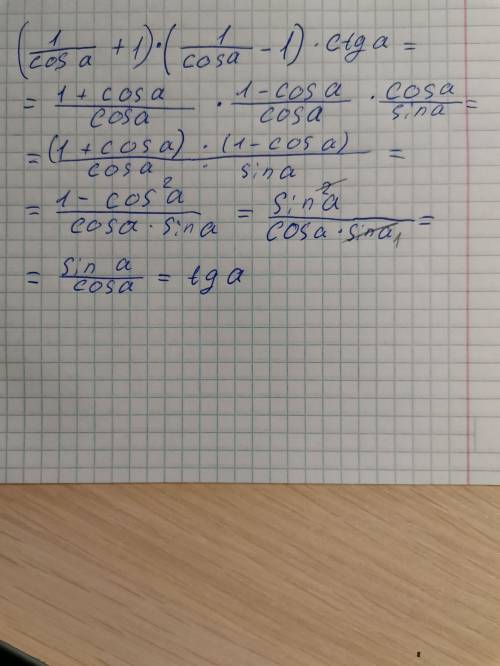 (1/cos a + 1) · (1/cos a - 1) · ctg a =
= (1 + cos a)/(cos a) · (1 - cos a)/(cos a) · (cos a)/(sin a) =
= ((1 + cos a) · (1 - cos a))/(cos a · sin a) =
= (1 - cos²a)/(cos a · sin a) = (sin²a)/(cos a · sin a₁) =
= (sin a)/(cos a) = tg a